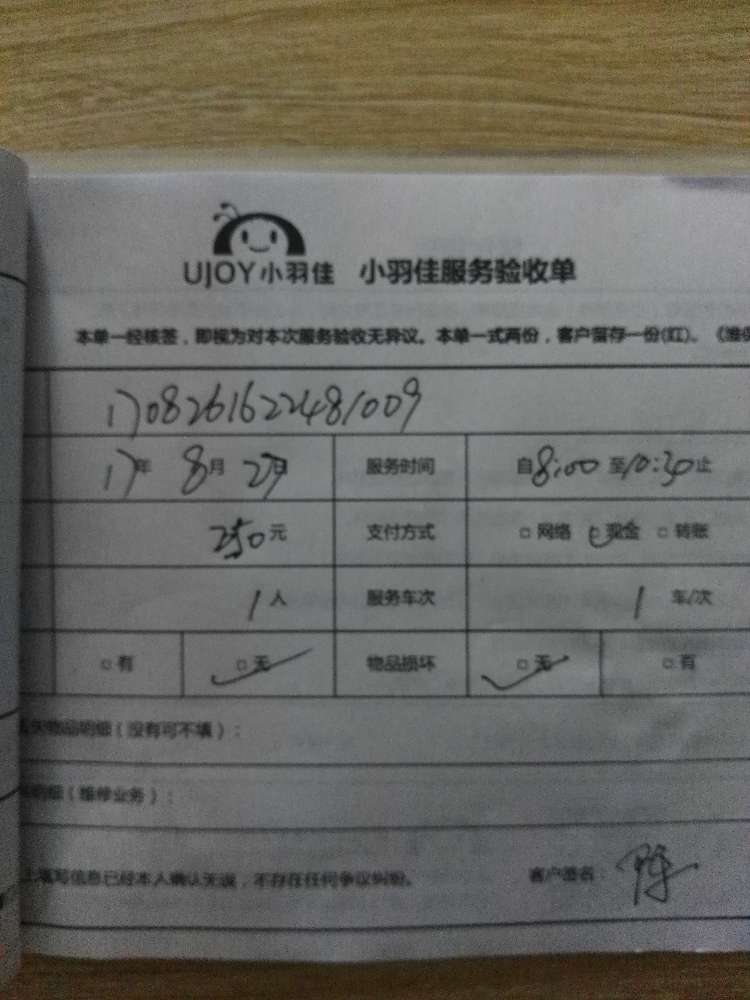 UJOY小羽佳 小羽佳服务验收单
本单一经核签，即视为对本次服务验收无异议。本单一式两份，客户留存一份(红)。
1708261622481009
17年 8月 27日 服务时间 自8:00至10:30止
250元 支付方式 □ 网络 □ 现金 □ 转账
1人 服务车次 1 车/次
□ 有 □ 无 物品损坏 □ 无 □ 有
失物品明细（没有可不填）：
明细（维修业务）：
上填写信息已经本人确认无误，不存在任何争议纠纷。 客户签名：